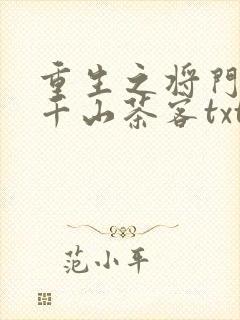 重生之将门
千山茶客txt
范小平